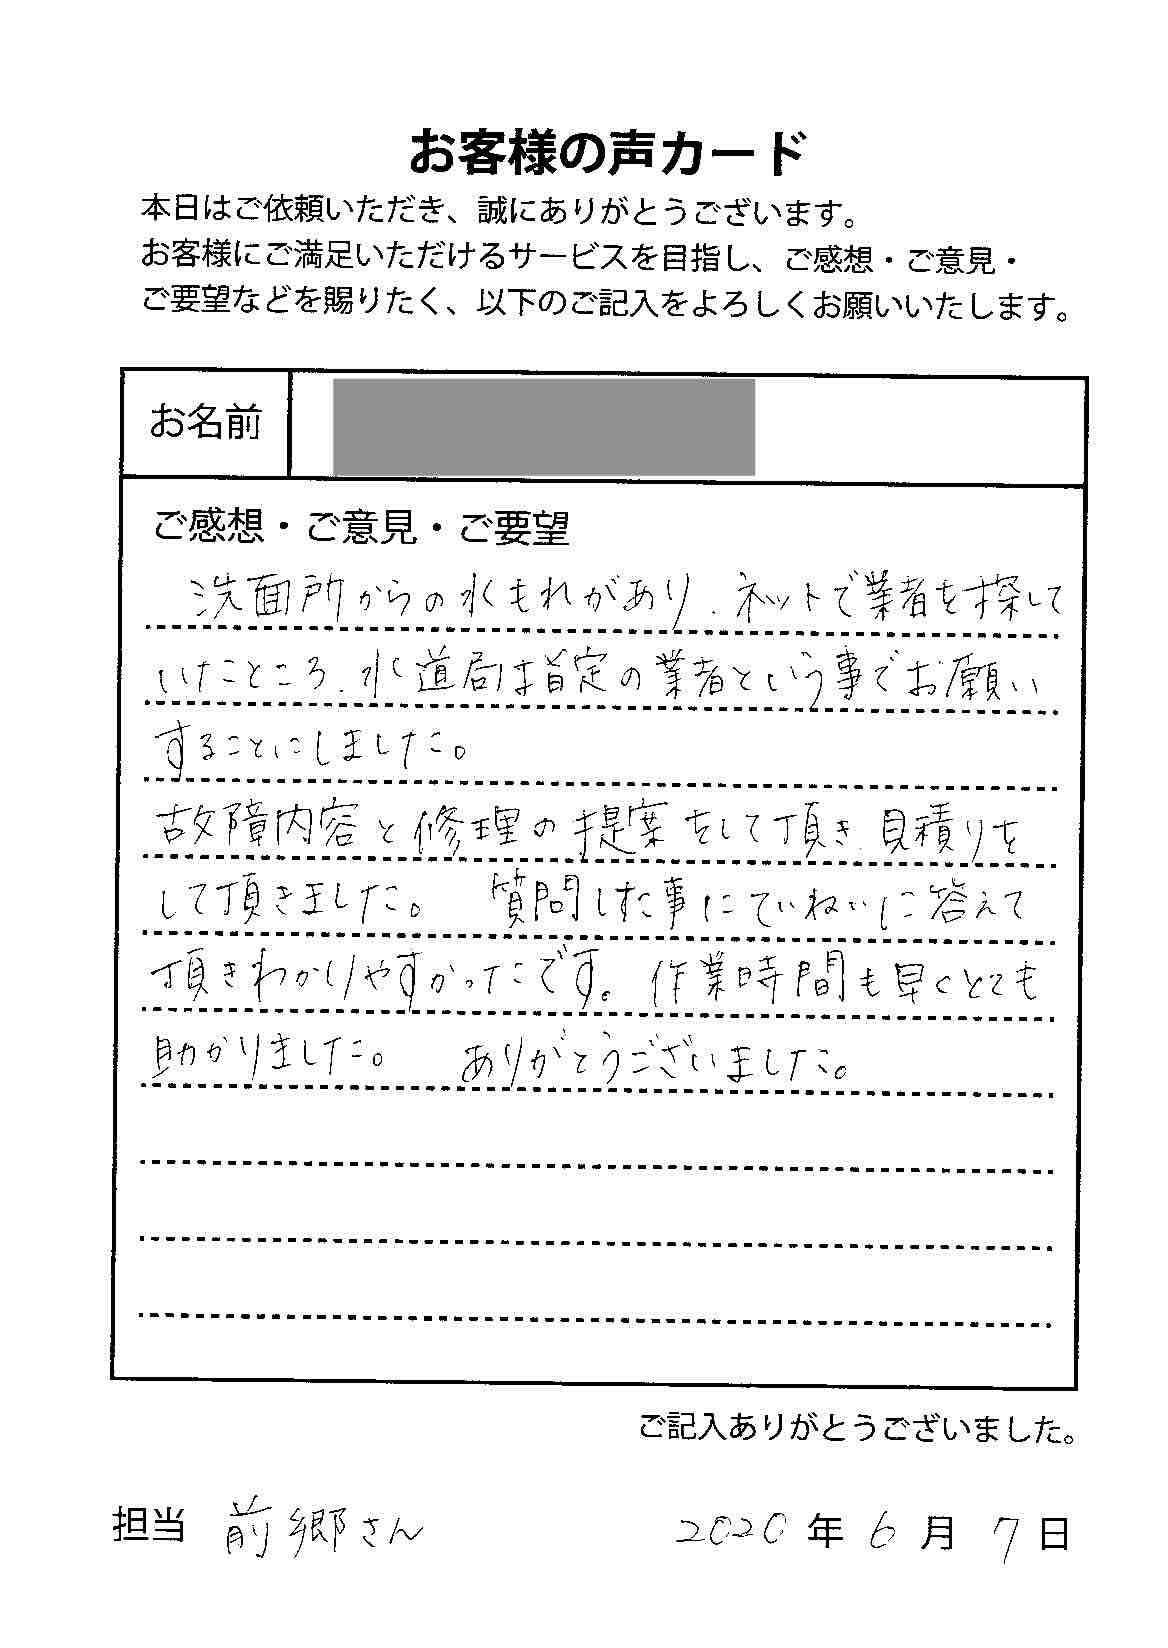 お客様の声カード
本日はご依頼いただき、誠にありがとうございます。
お客様にご満足いただけるサービスを目指し、ご感想・ご意見・
ご要望などを賜りたく、以下のご記入をよろしくお願いいたします。
お名前
ご感想・ご意見・ご要望
洗面所からの水もれがあり、ネットで業者を探して
いたところ、水道局は指定の業者という事でお願い
することにしました。
故障内容と修理の提案をして頂き、見積りを
して頂きました。 質問した事にていねいに答えて
頂きわかりやすかったです。作業時間も早くとても
助かりました。 ありがとうございました。
ご記入ありがとうございました。
担当 前郷さん 2020年6月7日